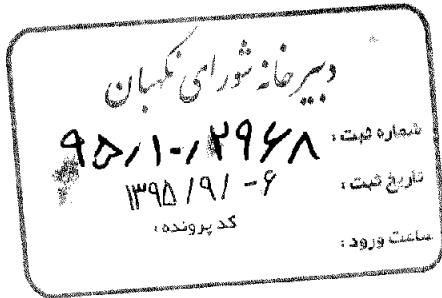 دبیرخانه شورای نگهبان
شماره ثبت: ۹۵/۱۰۰/۲۹۶۸
تاریخ ثبت: ۱۳۹۵/۹/۰۶
کد پرونده:
ساعت ورود: